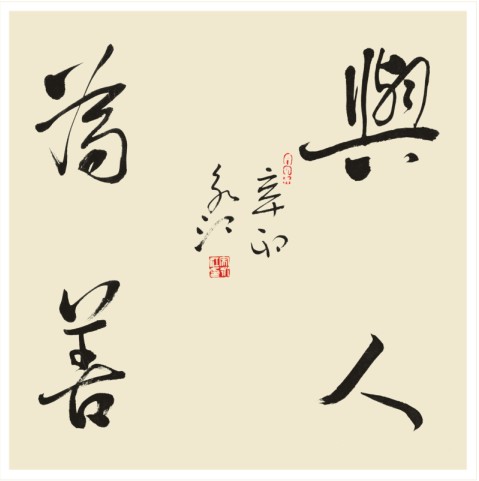 與人
為善
辛卯
永江